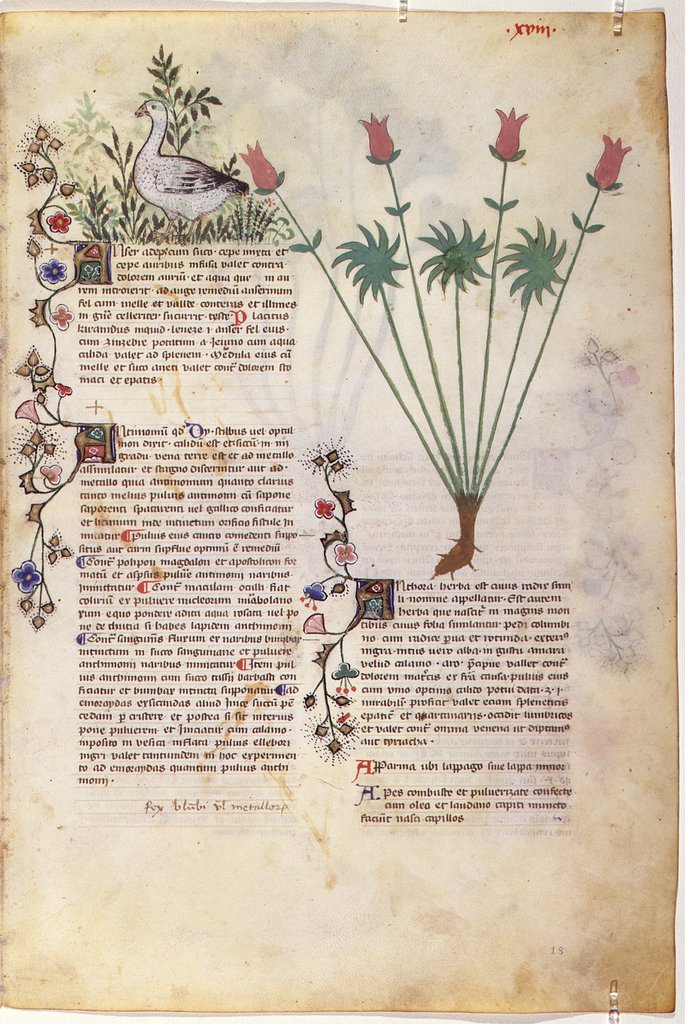 .xviii.
Anser adeps cum suco cepe mixta et
cepe auribus infusa valet contra
dolorem auriū et aqua que in au
rem introierit ad auge remediū anserinum
fel cum melle et
in celeriter sucurrit teste Placitus
inquid leneze i anser fel eius
cum zinzebre potatum a ieiuno cum aqua
calida valet ad splenem Medula eius cū
melle et suco aneti valet contͣ dolorem sto
maci et epatis
Antimoniū qd Dy stilbus uel
mon dixit calidū est et siccū in iii
gradu vena terre est et ad metallo
assimilatur et stagno discernitur aut ad
metallo quia antimonium quanto clarius
tanto melius puluis antimonii cū sapone
saponenti spaterenti vel gallico conficiatur
et licinium inde intinctum orificio fistule in
mitatur Puluis eius cancro comedenti suppo
situs aut carni supflue optimū ē remediū
Contͣ polipū magdalon et apostolicon for
matū et aspsus puluē antimonii naribus
immittatur Contͣ maculam oculi fiat
coliriū ex puluere nucleorum mirabolano
rum equo pondere adita aqua rosata vel po
ne de tuthia si habes lapidem anthimonii
Contͣ sanguinis fluxum ex naribus bumbax
intinctum in succo sanguinarie et puluere
anthimonii naribus inmittatur Item pul
uis anthimonii cum succo tassi barbassi con
ficiatur et bumbax intincta supponatur ad
emoroydas exsiccandas aliud Iinc succū pce
cedam p cristere et postea si sit interius
pone puluerem et Iniciatur cum calamo
inposito in vesica inflata puluis ellebori
nigri valet tantundem in hoc experimen
to ad emoroydas quantum puluis anthi
monii
fex vel metallorum
Anthora herba est cuius radix simi
li nomine appellatur Est autem
herba que nascitͬ in magnis mon
tibus cuius folia similantur pedi columbi
no cum radice pͬua et rotunda exteriꝰ
nigra intus vero alba in gustu amara
velud calamo aro pͥcipue vallet contͣ
dolorem matͥcis ex frͣ causa puluis eius
cum vino optimo calido potui data z i
mirabiliͭ proficit valet eciam spleneticis
epaticͭ et quartanariis occidit lumbricos
et valet contͣ omnia venena ut diptanꝰ
aut tyriacha
Apparina ubi lappago siue lappa minor
Apes combuste et puluerizate confecte
cum oleo et laudano capiti inuncto
faciunt nasci capillos
18